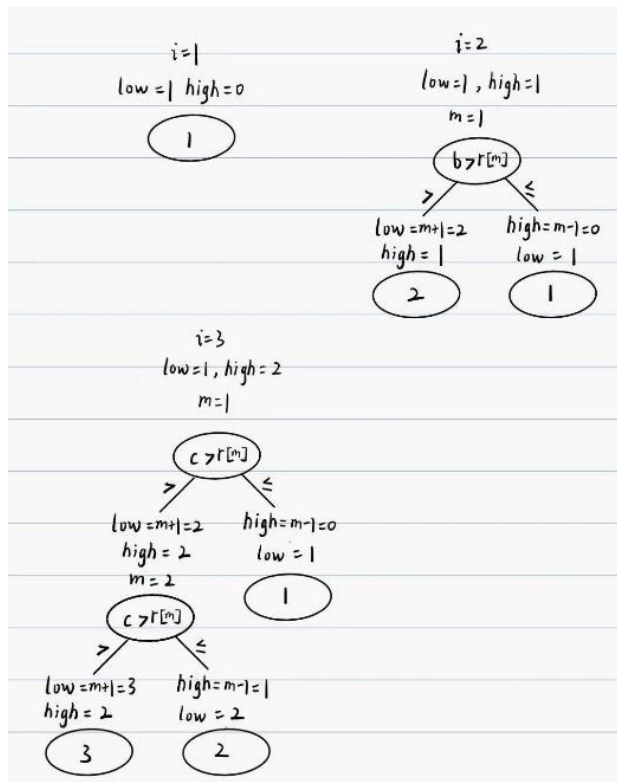 i=1
low=1 high=0
1
i=2
low=1, high=1
m=1
b>r[m]
> ≤
low=m+1=2 high=m-1=0
high=1 low=1
2 1
i=3
low=1, high=2
m=1
c>r[m]
> ≤
low=m+1=2 high=m-1=0
high=2 low=1
m=2
1
c>r[m]
> ≤
low=m+1=3 high=m-1=1
high=2 low=2
3 2